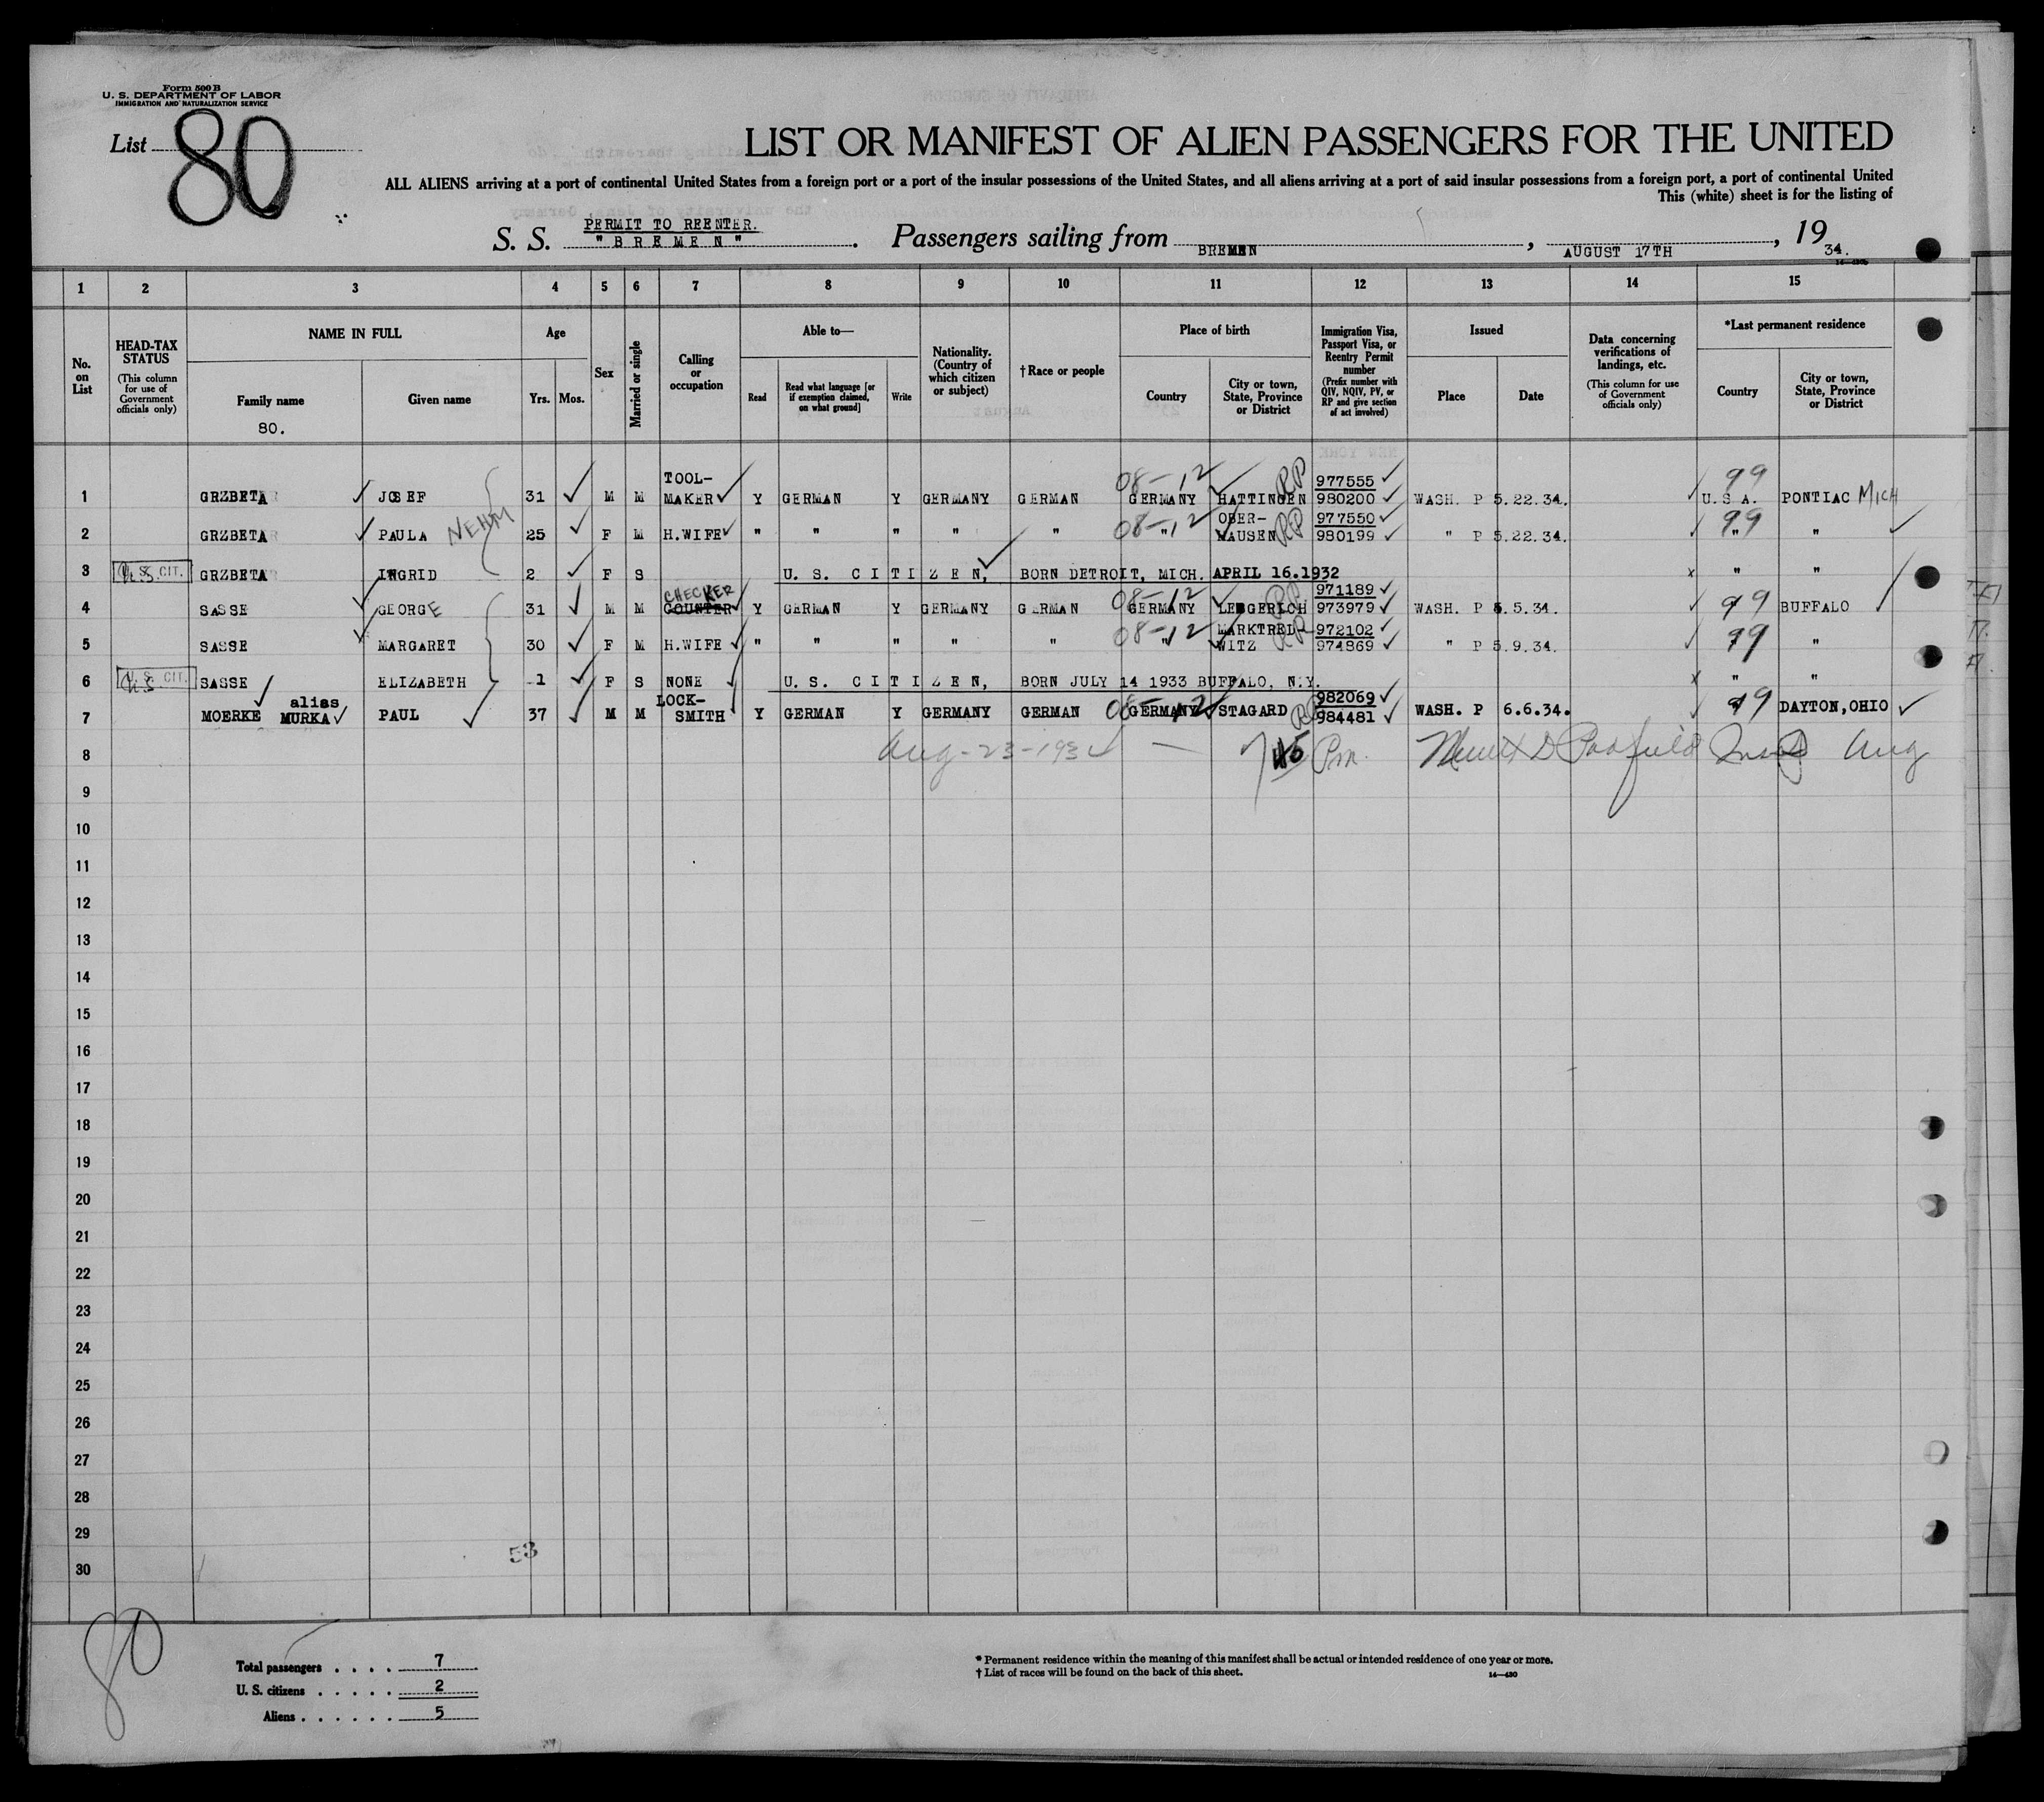 Form 500 B
U. S. DEPARTMENT OF LABOR
IMMIGRATION AND NATURALIZATION SERVICE
List 80
LIST OR MANIFEST OF ALIEN PASSENGERS FOR THE UNITED
ALL ALIENS arriving at a port of continental United States from a foreign port or a port of the insular possessions of the United States, and all aliens arriving at a port of said insular possessions from a foreign port, a port of continental United
This (white) sheet is for the listing of
PERMIT TO REENTER.
S. S. "BREMEN". Passengers sailing from BREMEN, AUGUST 17TH, 19 34.
1 2 3 4 5 6 7 8 9 10 11 12 13 14 15
No. on List
HEAD-TAX STATUS (This column for use of Government officials only)
NAME IN FULL
Family name
80.
Given name
Age
Yrs. Mos.
Sex
Married or single
Calling or occupation
Able to—
Read
Read what language [or if exemption claimed, on what ground]
Write
Nationality. (Country of which citizen or subject)
†Race or people
Place of birth
Country
City or town, State, Province or District
Immigration Visa, Passport Visa, or Reentry Permit number (Prefix number with QIV, NQIV, PV, or RP and give section of act involved)
Issued
Place
Date
Data concerning verifications of landings, etc. (This column for use of Government officials only)
*Last permanent residence
Country
City or town, State, Province or District
1 GRZBETA JOSEF 31 M M TOOL-MAKER Y GERMAN Y GERMANY GERMAN 08-12 GERMANY HATTINGEN RP 977555 980200 WASH. P 5.22.34. 99 U.S.A. PONTIAC MICH
2 GRZBETA PAULA NEHM 25 F M H.WIFE " " " " " 08-12 " OBER-HAUSEN RP 977550 980199 " P 5.22.34. 99 " "
3 U.S. CIT. GRZBETA INGRID 2 F S U. S. CITIZEN, BORN DETROIT, MICH. APRIL 16.1932 " "
4 SASSE GEORGE 31 M M CHECKER COUNTER Y GERMAN Y GERMANY GERMAN 08-12 GERMANY LENGERICH RP 971189 973979 WASH. P 5.5.34. 99 BUFFALO
5 SASSE MARGARET 30 F M H.WIFE " " " " " 08-12 " MARKTREL-WITZ RP 972102 974869 " P 5.9.34. 99 "
6 U.S. CIT. SASSE ELIZABETH 1 F S NONE U. S. CITIZEN, BORN JULY 14 1933 BUFFALO, N.Y. " "
7 MOERKE alias MURKA PAUL 37 M M LOCK-SMITH Y GERMAN Y GERMANY GERMAN 08-12 GERMANY STAGARD RP 982069 984481 WASH. P 6.6.34. 99 DAYTON,OHIO
8 Aug-23-1934 — Pm. Insp Aug
9
10
11
12
13
14
15
16
17
18
19
20
21
22
23
24
25
26
27
28
29
53
30
80
Total passengers . . . . 7
U. S. citizens . . . . . 2
Aliens . . . . . . 5
* Permanent residence within the meaning of this manifest shall be actual or intended residence of one year or more.
† List of races will be found on the back of this sheet.
14—430